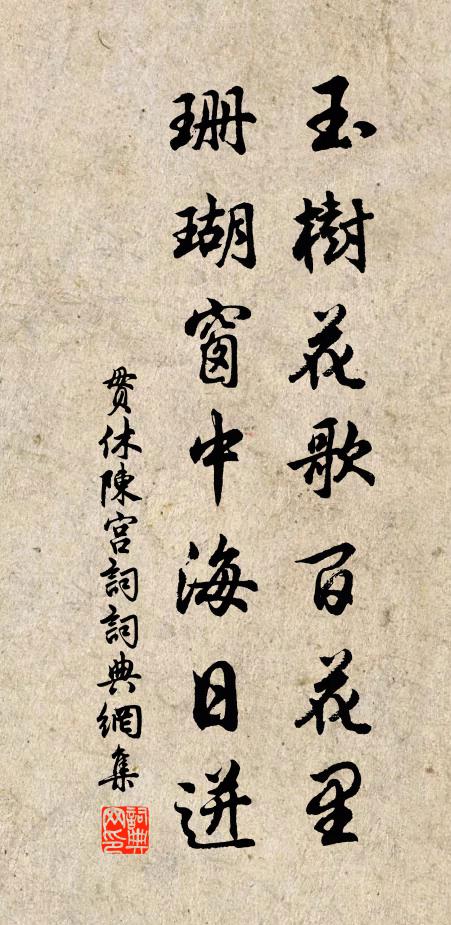 玉樹花歌百花里
珊瑚窗中海日迸
貫休陳宫詞詞典網集
詞典網印